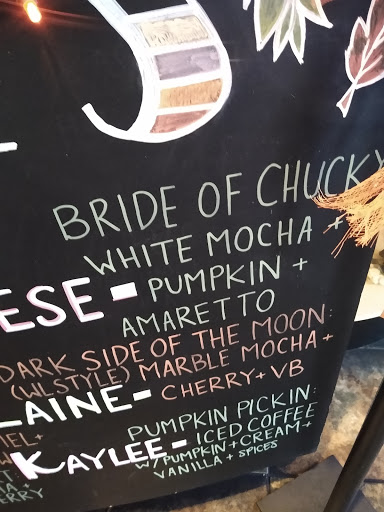 BRIDE OF CHUCKY
WHITE MOCHA +
ESE - PUMPKIN +
AMARETTO
DARK SIDE OF THE MOON:
(WLSTYLE) MARBLE MOCHA +
LAINE - CHERRY + VB
PUMPKIN PICKIN:
KAYLEE - ICED COFFEE
W/ PUMPKIN + CREAM +
VANILLA + SPICES
IEL +
ERRY